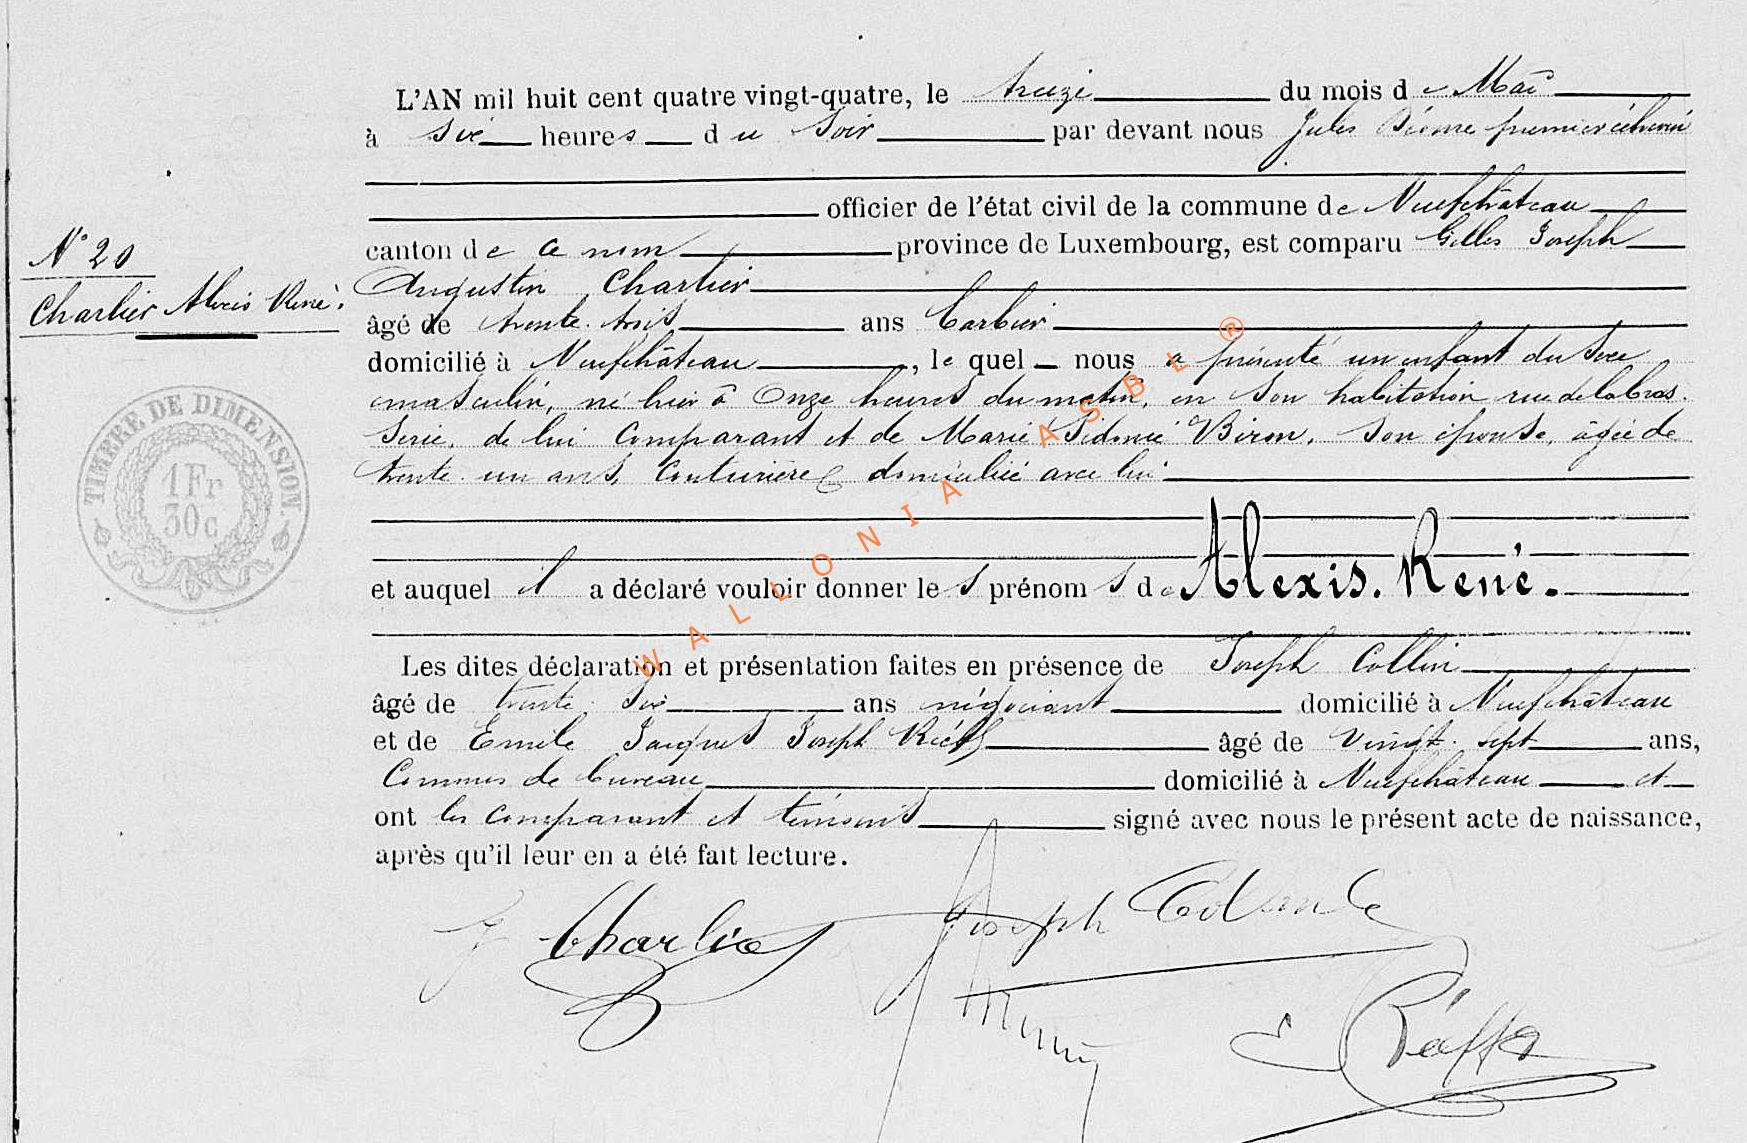 L'AN mil huit cent quatre vingt-quatre, le treize du mois de Mai
à six heures du soir par devant nous Jules premier échevin
officier de l'état civil de la commune de Neufchâteau
canton de ce nom province de Luxembourg, est comparu Gilles Joseph
N° 20
Augustin Charlier
Charlier Alexis René.
âgé de trente-trois ans barbier
domicilié à Neufchâteau, lequel nous a présenté un enfant du sexe
masculin, né hier à onze heures du matin, en son habitation rue de la bras-
serie, de lui comparant et de Marie Sidonie Biron, son épouse, âgée de
trente-un ans, couturière domiciliée avec lui
TIMBRE DE DIMENSION.
1Fr
30c
et auquel il a déclaré vouloir donner les prénoms de Alexis. René.
Les dites déclaration et présentation faites en présence de Joseph Collin
âgé de trente-six ans négociant domicilié à Neufchâteau
et de Emile Jacques Joseph âgé de vingt-sept ans,
Commis de bureau domicilié à Neufchâteau et
ont les comparant et témoins signé avec nous le présent acte de naissance,
après qu'il leur en a été fait lecture.
J Charlier Joseph
E
WALLONIA ASBL ®